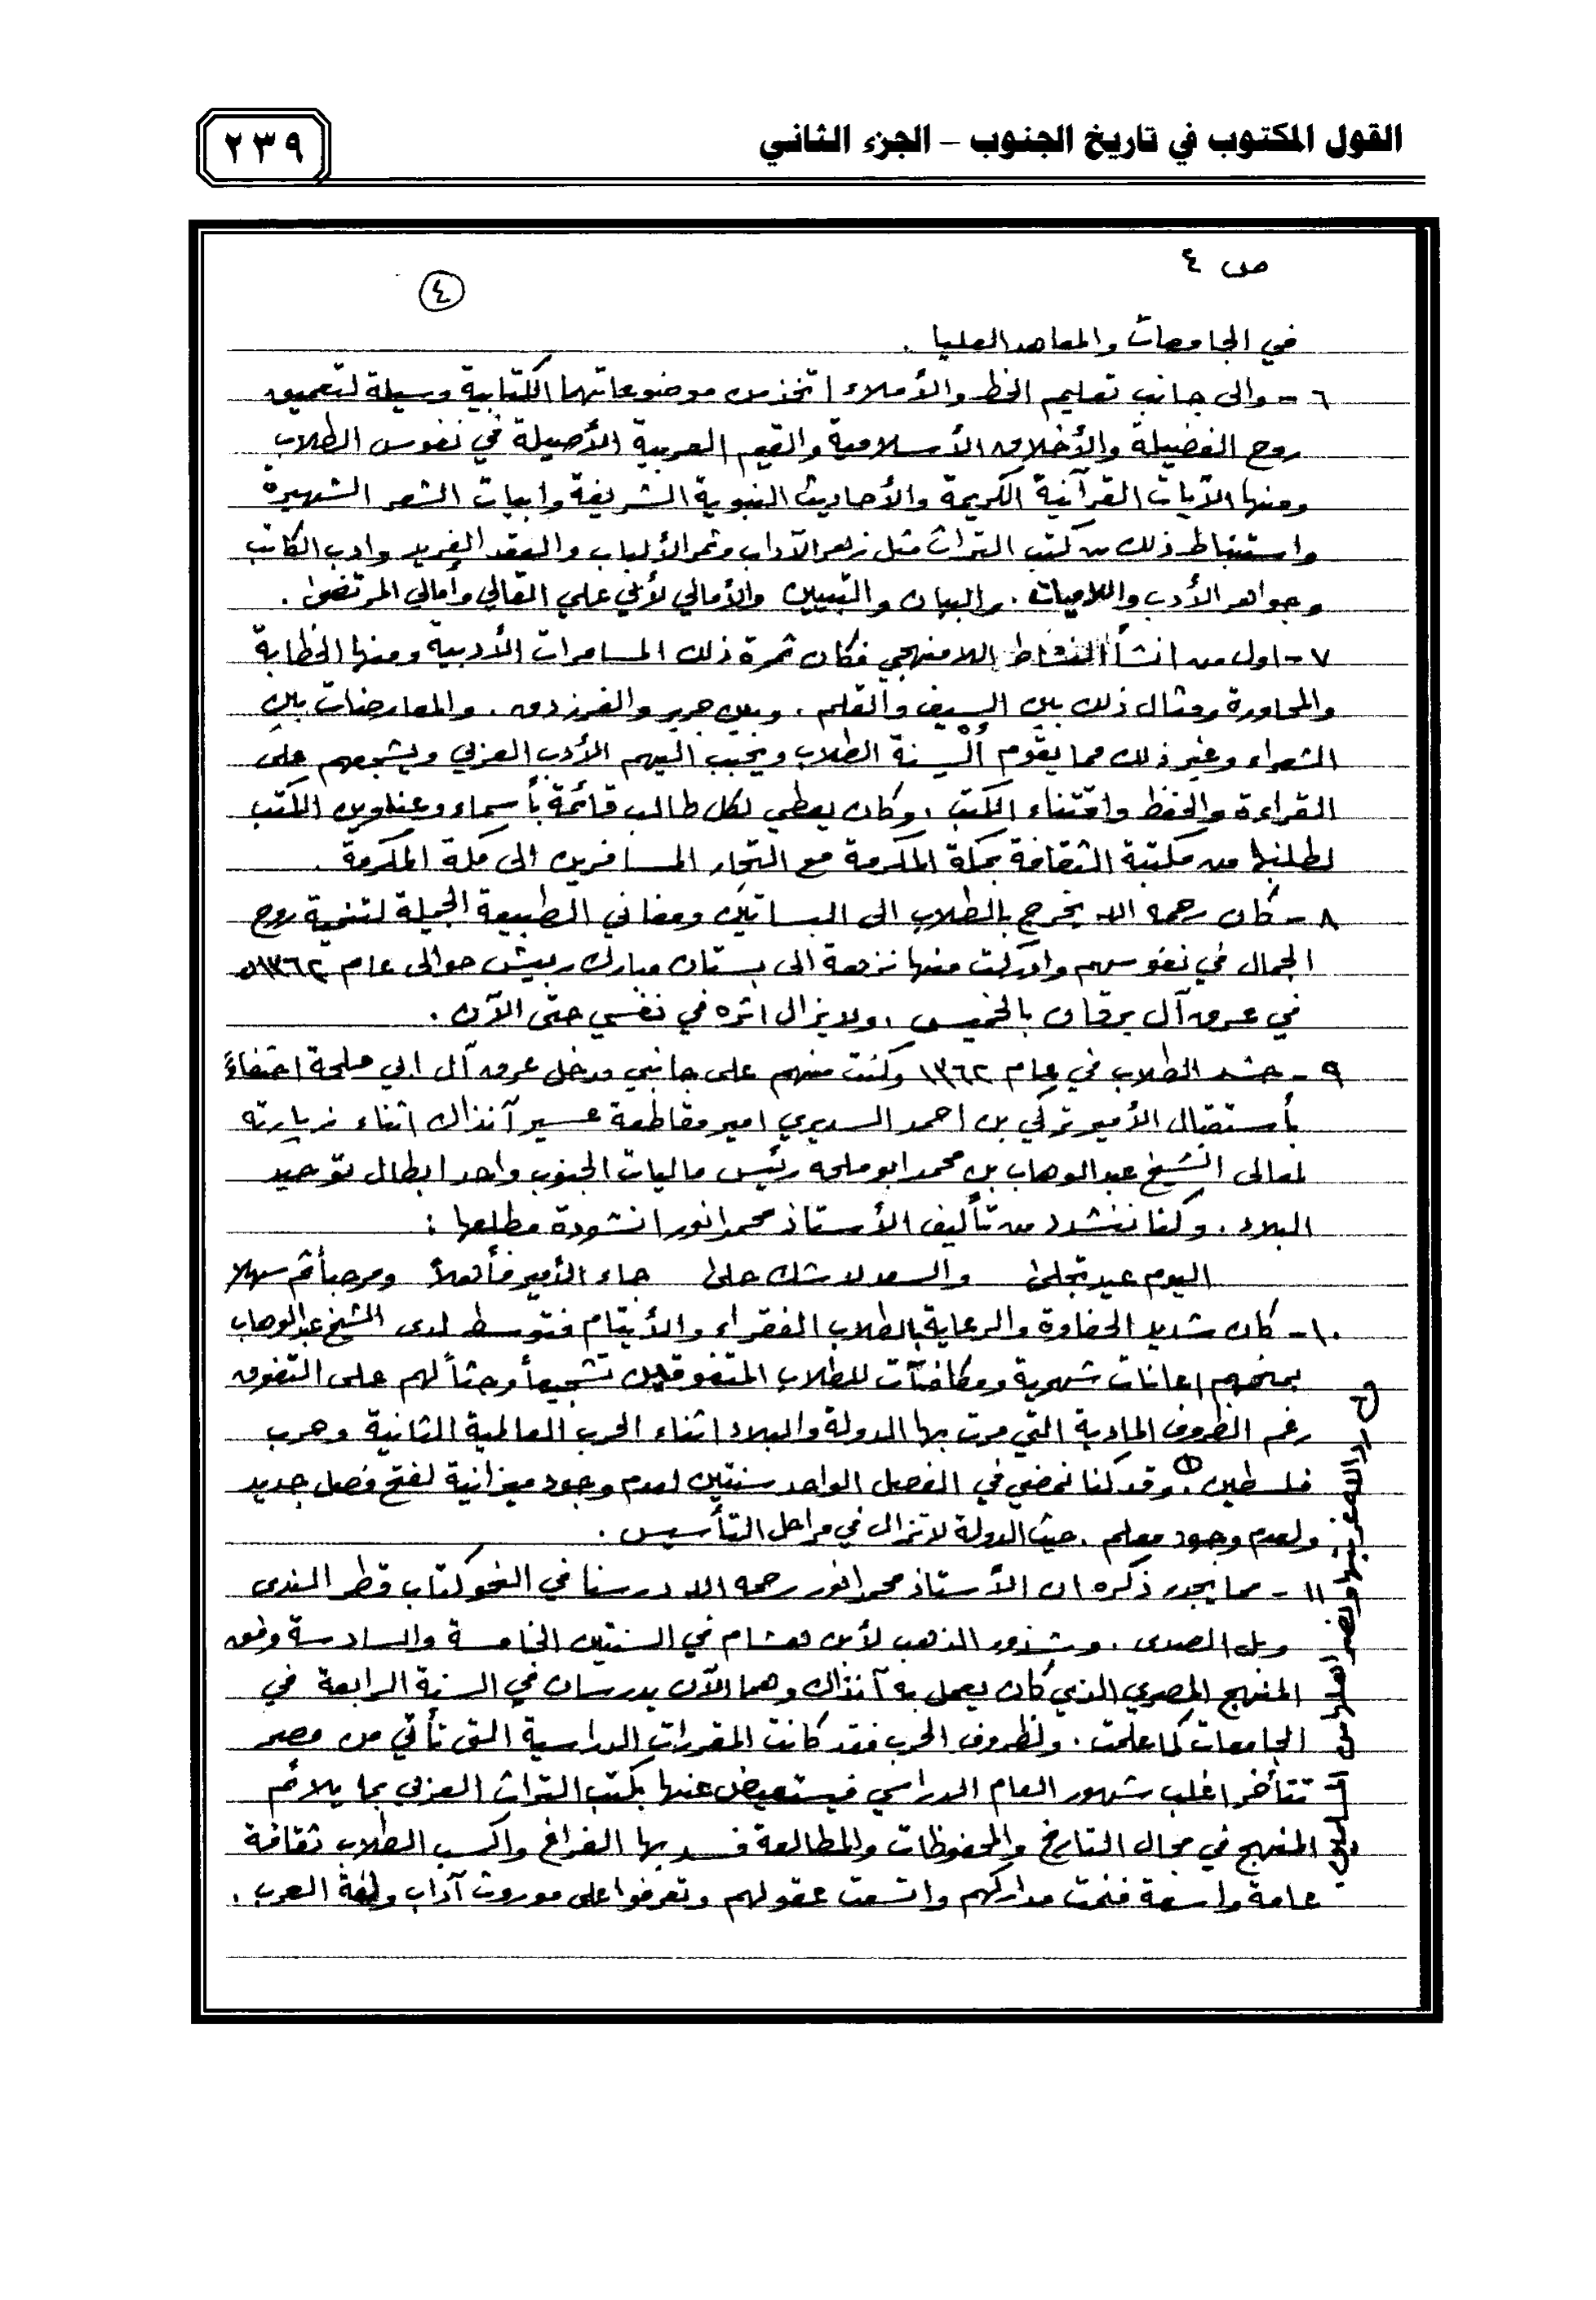 القول المكتوب في تاريخ الجنوب – الجزء الثاني
٢٣٩
ص ٤
٤
في الجامعات والمعاهد العليا .
٦ - والى جانب تعليم الخط والأملاء اتخذ من موضوعاتهما الكتابية وسيلة لتعميق
روح الفضيلة والأخلاق الأسلامية والقيم العربية الأصيلة في نفوس الطلاب
ومنها الآيات القرآنية الكريمة والأحاديث النبوية الشريفة وابيات الشعر الشهيرة
واستنباط ذلك من كتب التراث مثل زهر الآداب وثمر الألباب والعقد الفريد وادب الكاتب
وجواهر الأدب واللاميات . والبيان والتبيين والأمالي لأبي علي القالي وأمالي المرتضى .
٧ - اول من انشأ النشاط اللامنهجي فكان ثمرة ذلك المسامرات الأدبية ومنها الخطابة
والمحاورة ومثال ذلك بين السيف والقلم . وبين جرير والفرزدق . والمعارضات بين
الشعراء وغير ذلك مما يقوم ألسنة الطلاب ويحبب اليهم الأدب العربي ويشجعهم على
القراءة والحفظ واقتناء الكتب . وكان يعطي لكل طالب قائمة بأسماء وعناوين الكتب
لطلبها من مكتبة الثقافة بمكة المكرمة مع التجار المسافرين الى مكة المكرمة .
٨ - كان رحمه الله يخرج بالطلاب الى البساتين ومغاني الطبيعة الجميلة لتنمية روح
الجمال في نفوسهم وادركت منها نزهة الى بستان مبارك ربيش حوالى عام ١٣٦٢هـ
في عرق آل برقان بالخميس . ولا يزال اثره في نفسي حتى الآن .
٩ - حشد الطلاب في عام ١٣٦٢ وكنت منهم على جانبي مدخل عرق آل ابي ملحة احتفاءً
بأستقبال الأمير تركي بن احمد السديري امير مقاطعة عسير آنذاك اثناء زيارته
لمعالى الشيخ عبدالوهاب بن محمد ابو ملحه رئيس ماليات الجنوب واحد ابطال توحيد
البلاد . وكنا ننشد من تأليف الأستاذ محمد انور انشودة مطلعها :
اليوم عيد تجلى والسعد لا شك حلى جاء الأمير فأهلاً ومرحباً ثم سهلا
١٠ - كان شديد الحفاوة والرعاية بالطلاب الفقراء والأيتام فتوسط لدى الشيخ عبدالوهاب
بمنحهم إعانات شهرية ومكافئآت للطلاب المتفوقين تشجيعاً وحثاً لهم على التفوق
رغم الظروف المادية التي مرت بها الدولة والبلاد اثناء الحرب العالمية الثانية وحرب
فلسطين ① . وقد كنا نمضي في الفصل الواحد سنتين لعدم وجود ميزانية لفتح فصل جديد
ولعدم وجود معلم . حيث الدولة لا تزال في مراحل التأسيس .
١١ - مما يجدر ذكره ان الأستاذ محمد انور رحمه الله درسنا في النحو كتاب قطر الندى
وبل الصدى . وشذور الذهب لأبن هشام في السنتين الخامسة والسادسة وفق
المنهج المصري الذي كان يعمل به آنذاك وهما الآن يدرسان في السنة الرابعة في
الجامعات كما علمت . ولظروف الحرب فقد كانت المقررات الدراسية التي تأتي من مصر
تتأخر اغلب شهور العام الدراسي فيستعيض عنها بكتب التراث العربي بما يلائم
المنهج في مجال التاريخ والمحفوظات والمطالعة فسد بها الفراغ واكسب الطلاب ثقافة
عامة واسعة فنمت مداركهم واتسعت عقولهم وتعرفوا على موروث آداب ولغة العرب .
رد الله غربتها ونصر اهلها من المسلمين